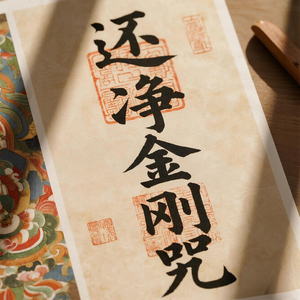 还净金刚咒